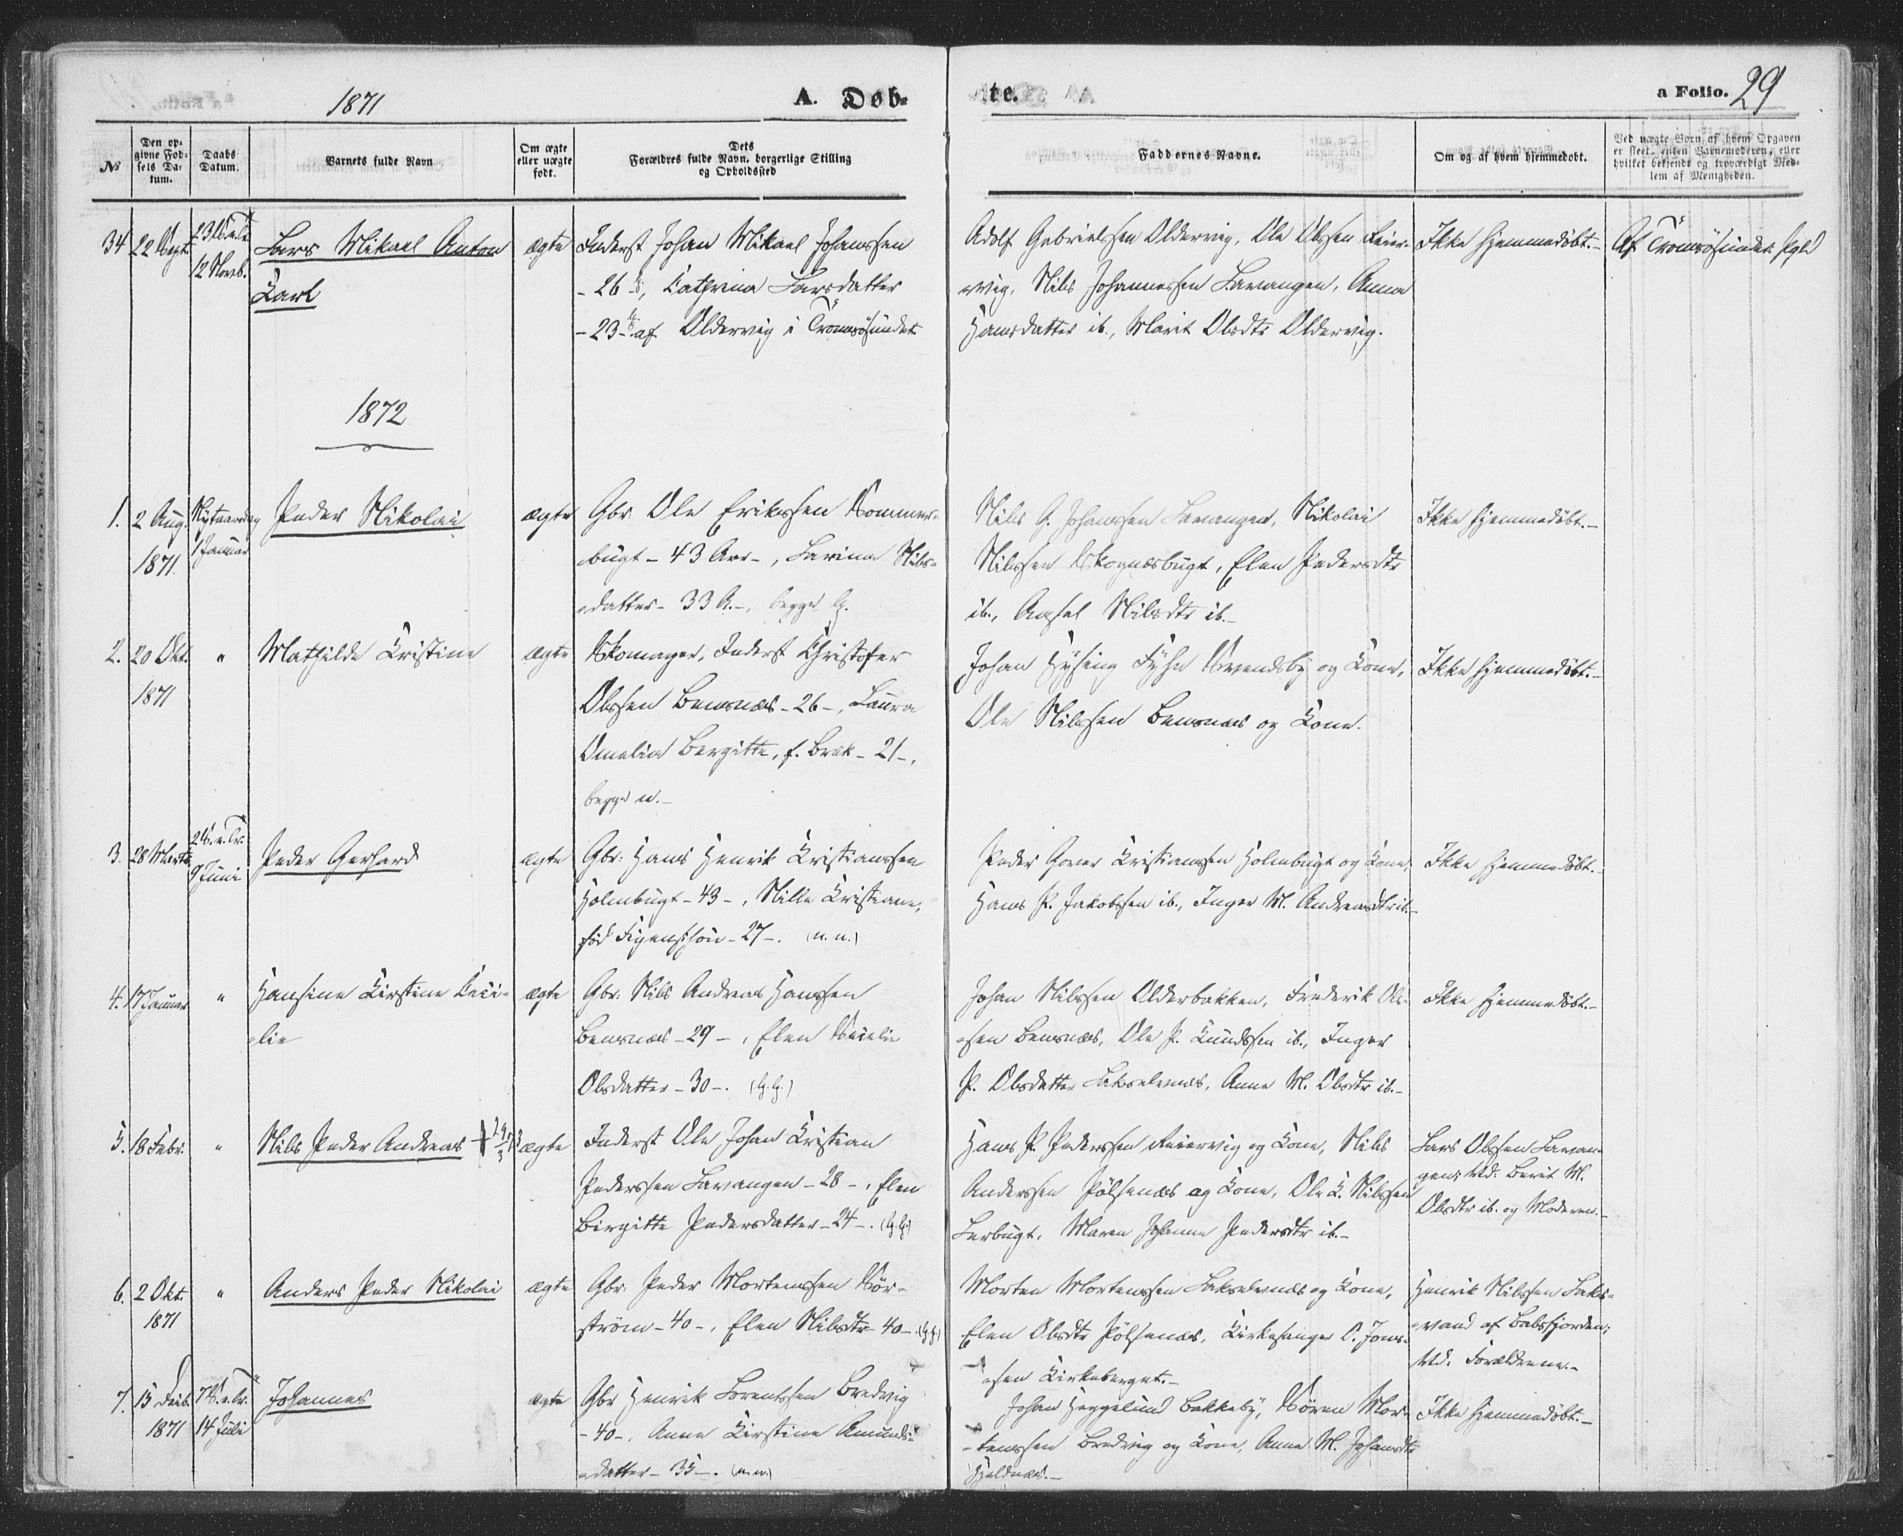 1871
A. Døb-
te.
a Folio. 29
No
Den op-
givne Fød-
sels Da-
tum.
Daabs
Datum.
Barnets fulde Navn
Om ægte
eller uægte
født.
Dets
Forældres fulde Navn, borgerlige Stilling
og Opholdssted
Faddernes Navne.
Om og af hvem hjemmedøbt.
Ved uægte Børn af hvem Opgaven
er skeet, enten Barnemoderen, eller
hvilket bekjendt og troværdigt Med-
lem af Menigheden.
34 22 Septr. 23 S. e. Tr. 12 Novb.
Lars Mikael Anton
Karl
ægte
Inderst Johan Mikael Johanssen
- 26 -, Cathrina Larsdatter
- 23 - af Oldervig i Tromsösundet
Adolf Gabrielssen Oldervig, Ole Olssen Reier-
vig, Nils Johannessen Lavangen, Anna
Hansdatter ib., Marit Olsdtr Oldervig.
Ikke hjemmedöbt.-
Af Tromsösundet Sogn
1872
1. 2 Aug. 1871 Nytaarsdag 1 Januar
Peder Nikolai
ægte
Gbr. Ole Erikssen Sommer-
bugt - 43 Aar -, Larina Nils-
datter - 33 A. -, begge
Nils G. Johanssen Lavangen, Nikolai
Nilssen Skognæsbugt, Elen Pedersdtr
ib., Axsel Nilsdtr ib.-
Ikke hjemmedöbt.-
2. 20 Okt. 1871 "
Mathilde Kristine
ægte
Skomager, Inderst Christofer
Olssen Bensnæs - 26 -, Laura
Omelia Bergitte, f. Bræk - 21 -,
begge n.-
Johan Hysing Fyhn Svendsby og Kone,
Ole Nilssen Bensnæs og Kone.
Ikke hjemmedöbt.-
3. 28 Marts 2 S. e. Tr. 9 Juni
Peder Gerhard
ægte
Gbr: Hans Henrik Kristianssen
Holmbugt - 43 -, Nille Kristiane,
född Figenschou - 27 -. (n. n.)
Peder Goner Kristianssen Holmbugt og Kone,
Hans P. Jakobssen ib., Inger M. Andreasdtr ib.-
Ikke hjemmedöbt.-
4. 17 Januar "
Hansine Kirstine Ceci-
lie
ægte
Gbr: Nils Andreas Hanssen
Bensnæs - 29 -, Elen Secelie
Olsdatter - 30 -.
Johan Nilssen Olderbakken, Frederik Ols-
sen Bensnæs, Ole P. Knudssen ib., Inger
P. Olsdatter Lakselvnæs, Anne M. Olsdtr ib.-
Ikke hjemmedöbt.-
5. 18 Febr. "
Nils Peder Andreas
ægte
Inderst Ole Johan Kristian
Pederssen Lavangen - 28 -, Elen
Birgitte Pedersdatter - 24 -.
Hans P. Pederssen Reiervig og Kone, Nils
Anderssen Pölsenæs og Kone, Ole K. Nilssen
Lerbugt, Maren Johanna Pedersdtr ib.-
Lars Olssen Lavan-
gen; Vid. Berit M.
Olsdtr ib. og Moderen.-
6. 2 Okt. 1871 "
Anders Peder Nikolai
ægte
Gbr. Peder Mortenssen Sör-
ström - 40 -, Elen Nilsdtr - 40 -.
Morten Mortenssen Lakselvnæs og Kone,
Elen Olsdtr Pölsenæs, Kirkesanger O. Jons-
sen Kirkeberget.-
Henrik Nilssen Laks-
vand af Balsfjorden;
Vid. Forældrene.-
7. 15 Decb. 1871 7 S. e. Tr. 14 Juli
Johannes
ægte
Gbr Henrik Lorentssen Bredvig
- 40 -, Anne Kirstine Amunds-
datter - 35 -. (n. n.)
Johan Heggelund Bakkeby, Sören Mor-
tenssen Bredvig og Kone, Anna M. Johansdtr
Hjeldnæs.-
Ikke hjemmedöbt.-